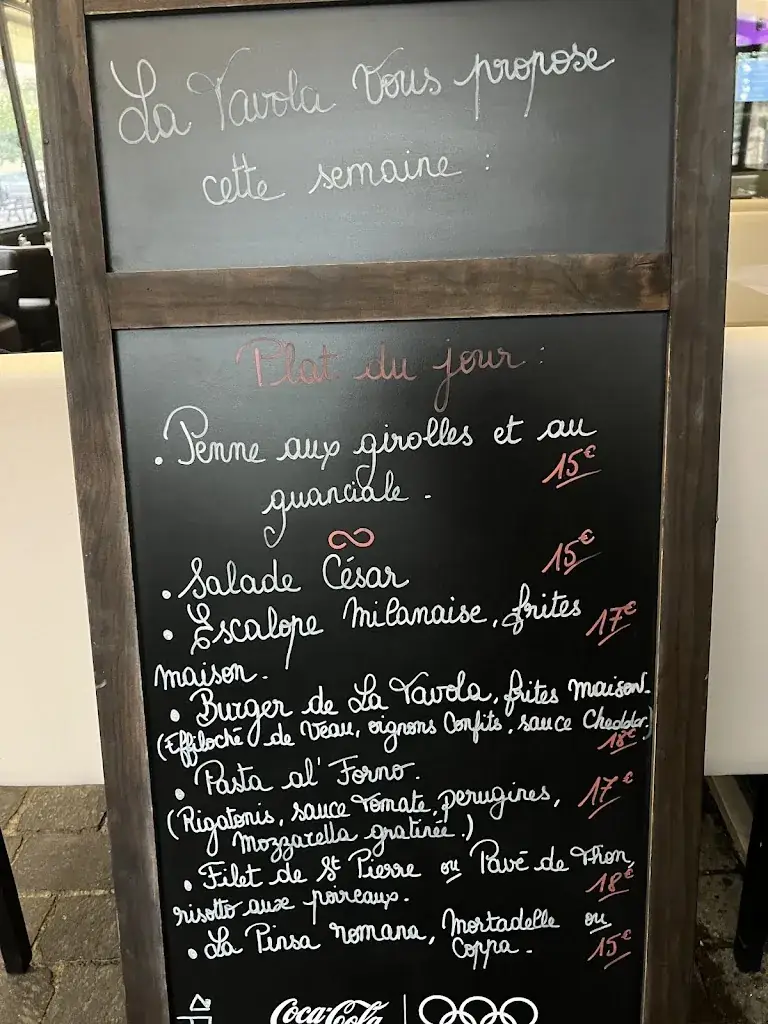 La Tavola Vous propose
cette semaine :
Plat du jour :
. Penne aux girolles et au
15€
guanciale .
. Salade César 15€
. Escalope Milanaise, frites 17€
maison.
. Burger de La Tavola, frites maison.
(Effiloché de Veau, oignons Confits, sauce Cheddar.)
18€
. Pasta al' Forno.
(Rigatonis, sauce Tomate, perugines, 17€
Mozzarella gratinée.)
. Filet de St Pierre ou Pavé de Thon,
risotto aux poireaux. 18€
. La Pinsa romana, Mortadelle ou
Coppa . 15€
Coca-Cola